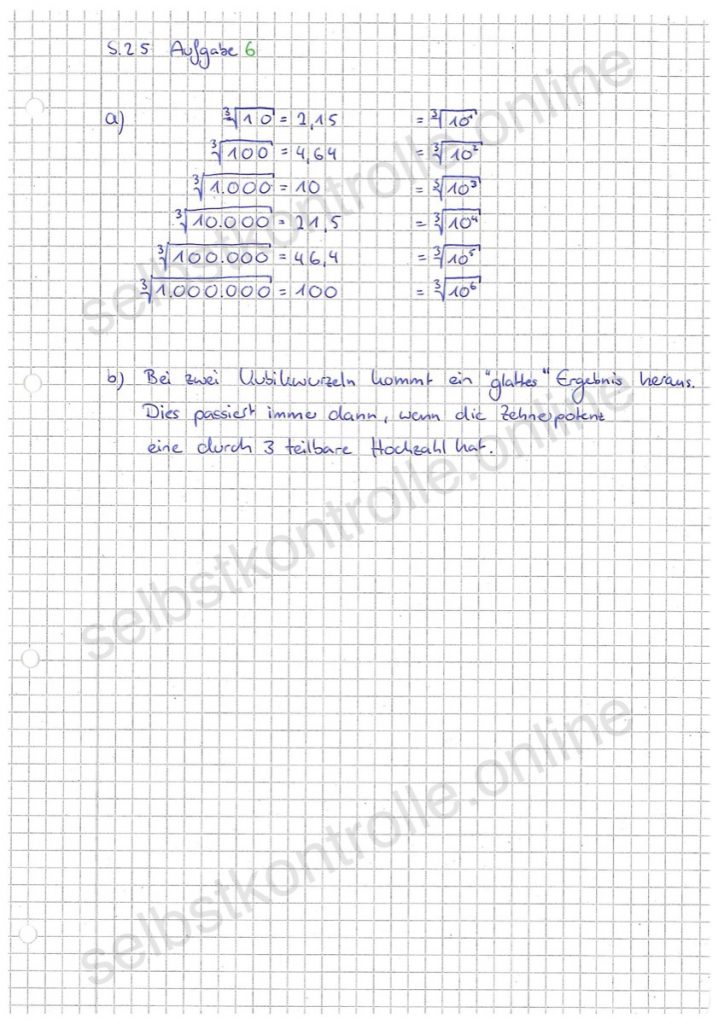 S.25 Aufgabe 6
a) ∛10 = 2,15 = ∛10¹
∛100 = 4,64 = ∛10²
∛1.000 = 10 = ∛10³
∛10.000 = 21,5 = ∛10⁴
∛100.000 = 46,4 = ∛10⁵
∛1.000.000 = 100 = ∛10⁶
b) Bei zwei Kubikwurzeln kommt ein "glattes" Ergebnis heraus.
Dies passiert immer dann, wenn die Zehnerpotenz
eine durch 3 teilbare Hochzahl hat.
selbstkontrolle.online
selbstkontrolle.online
selbstkontrolle.online